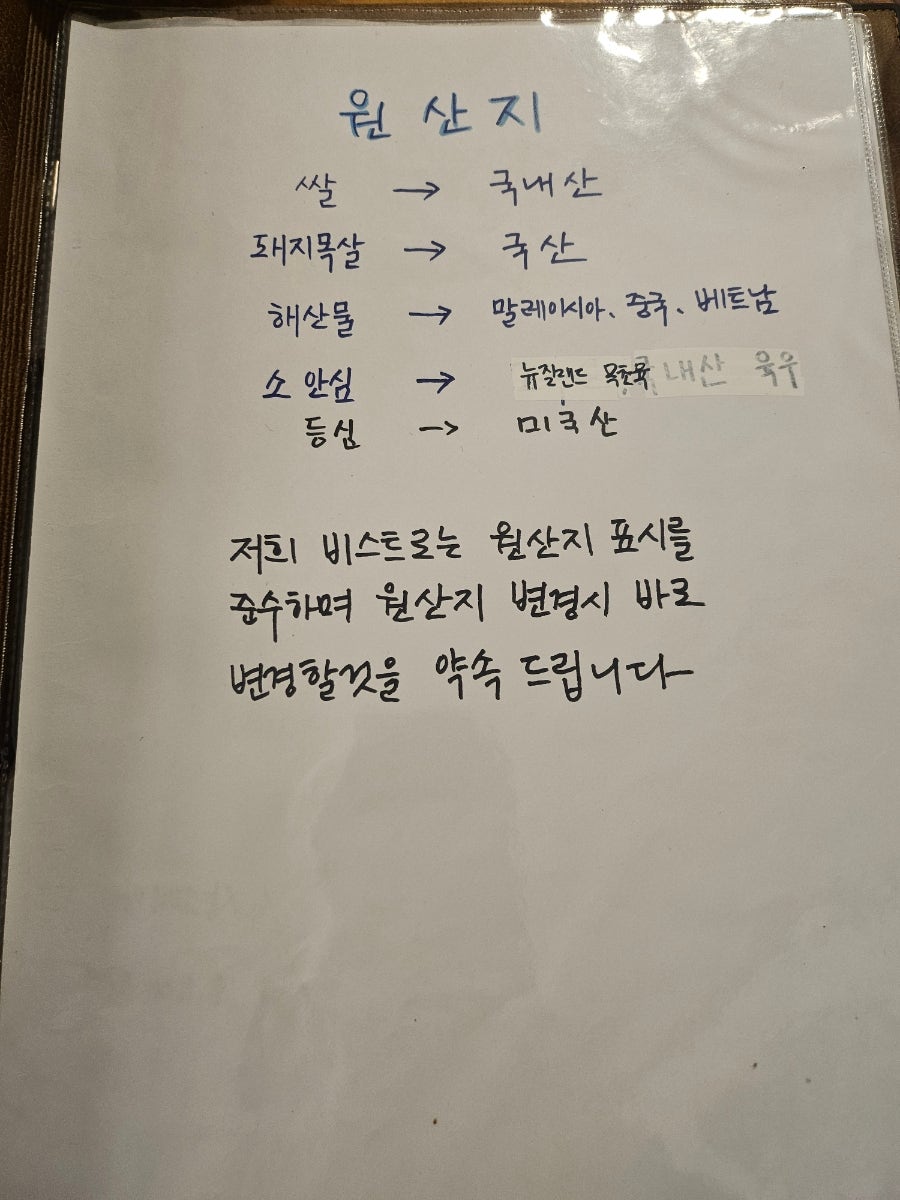 원산지
쌀 → 국내산
돼지목살 → 국산
해산물 → 말레이시아, 중국, 베트남
소 안심 → 뉴질랜드 목초육 국내산 육우
등심 → 미국산
저희 비스트로는 원산지 표시를
준수하며 원산지 변경시 바로
변경할것을 약속 드립니다